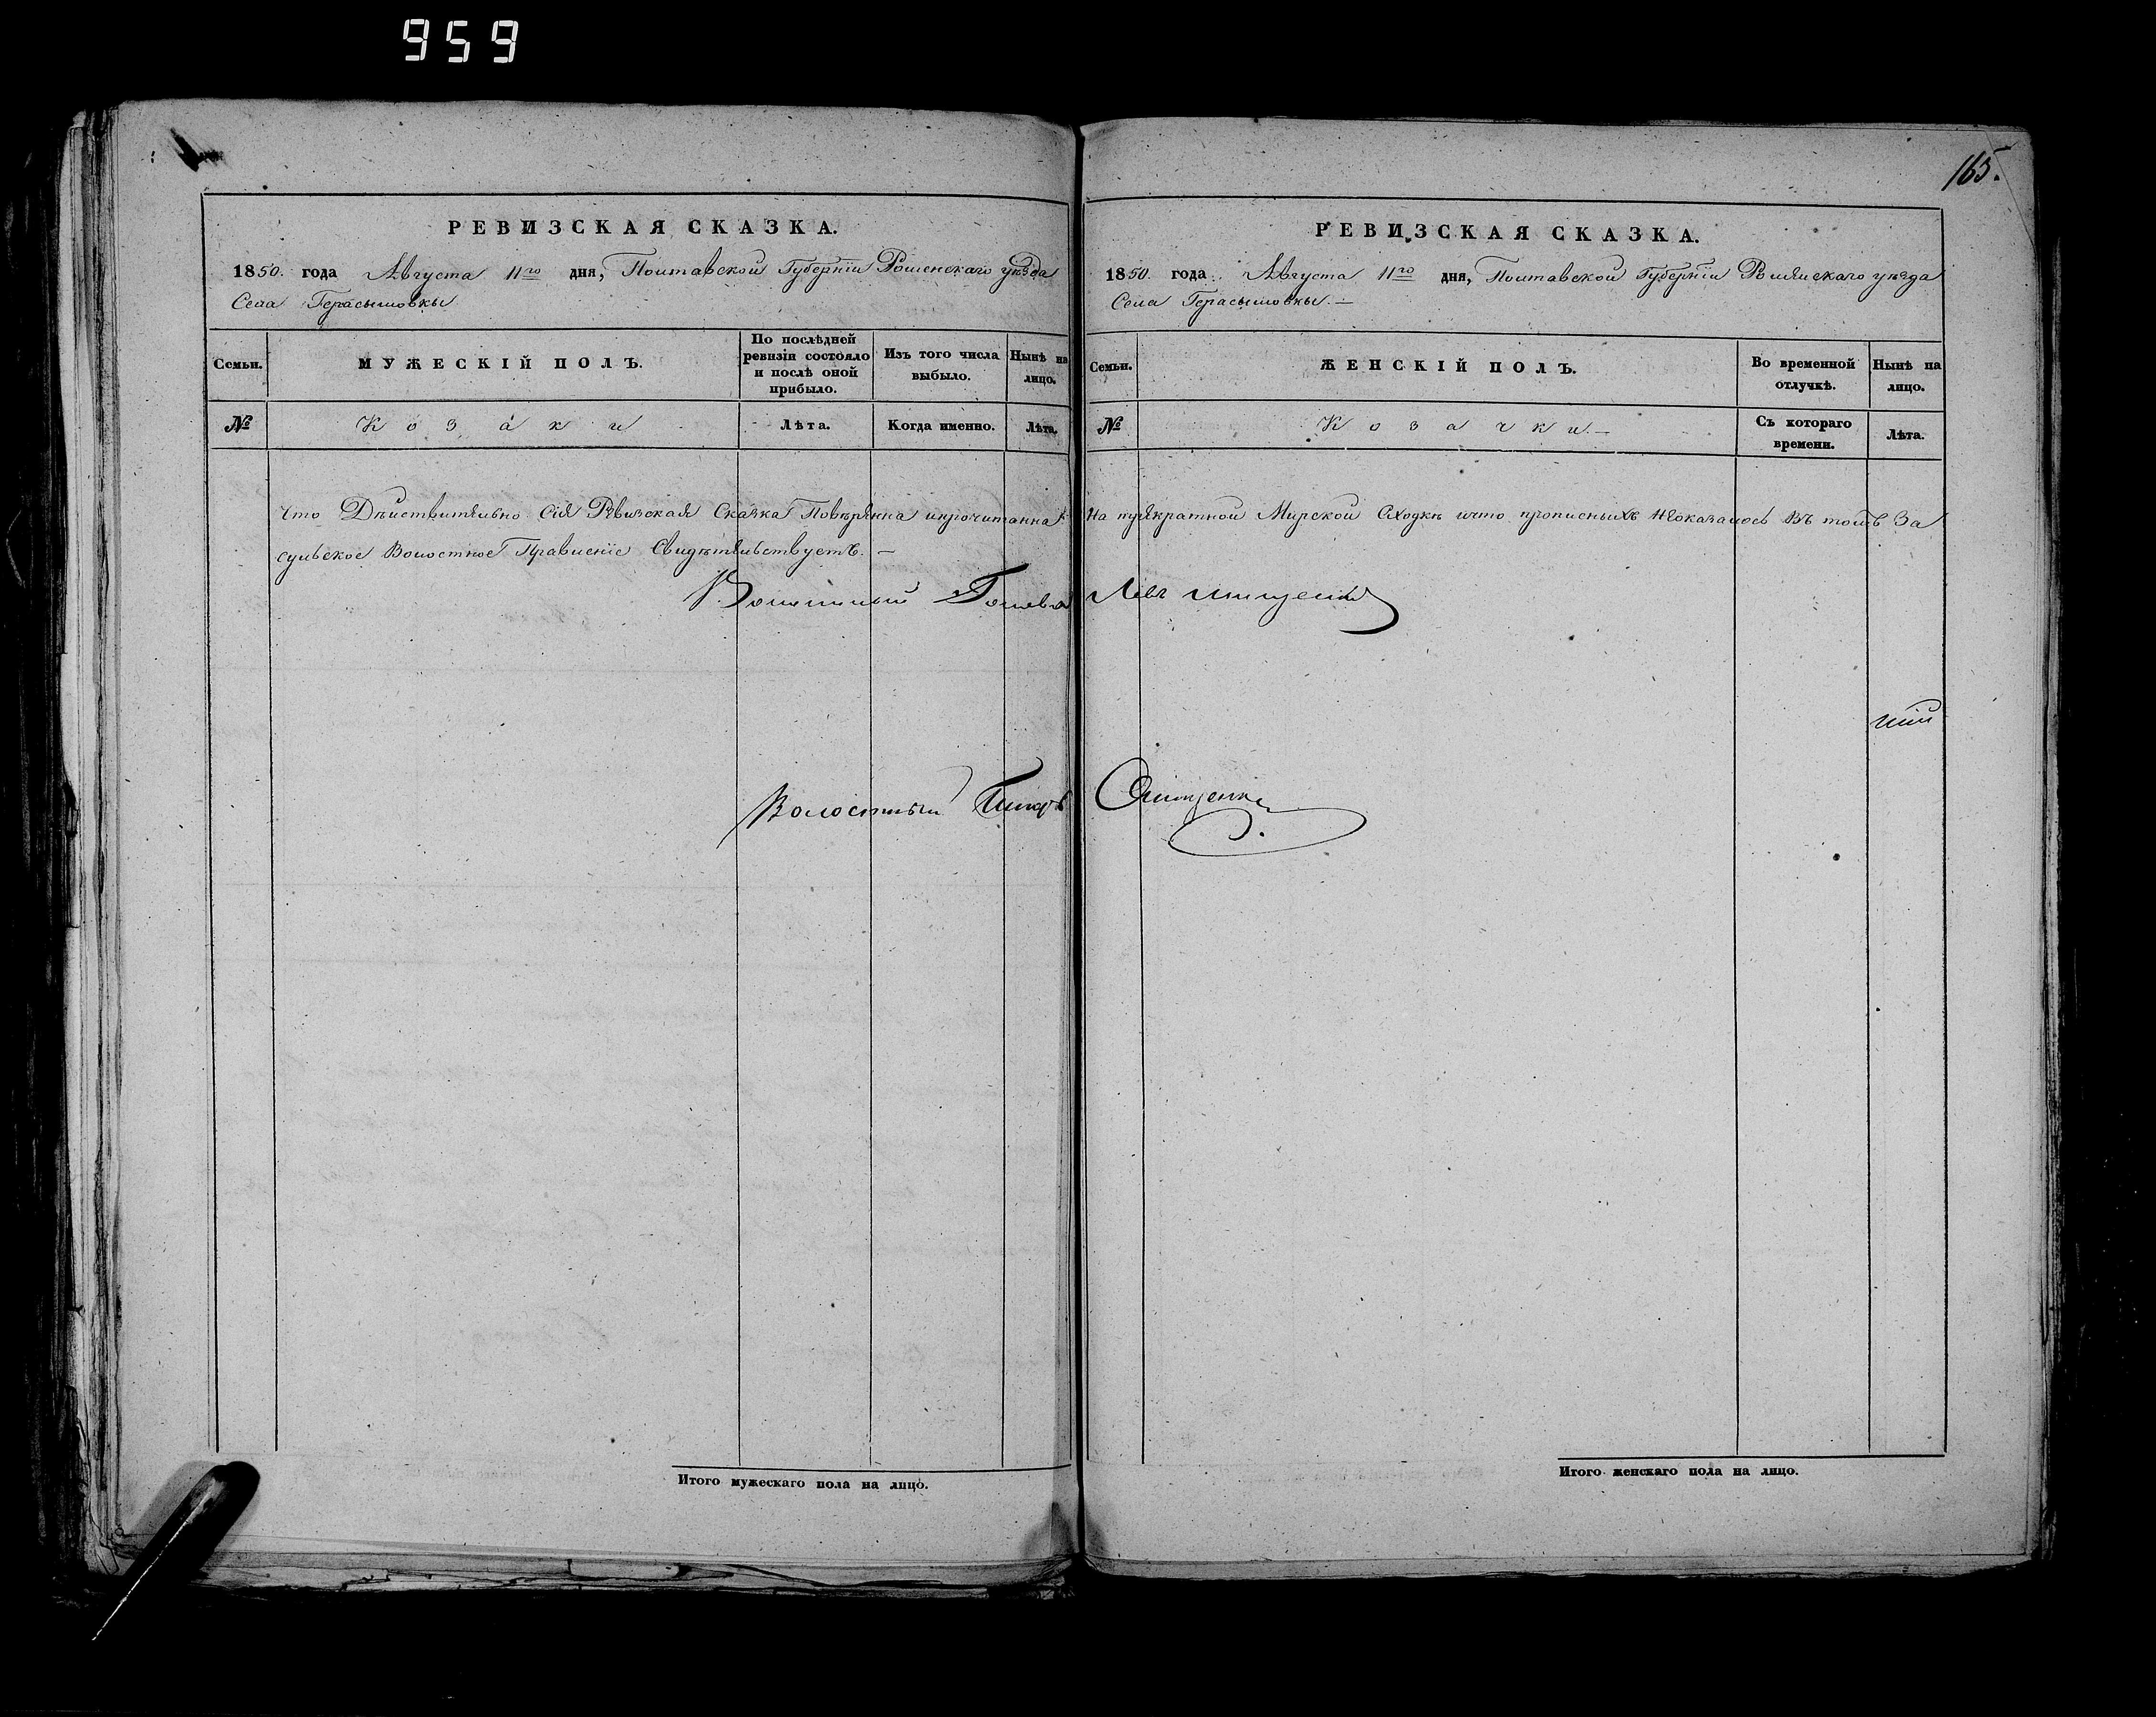 959
165.
РЕВИЗСКАЯ СКАЗКА.
1850. года Августа 11го дня, Полтавской Губерніи Роменскаго уѣзда
Села Герасымовкы
Семьи.
МУЖЕСКІЙ ПОЛЪ.
По послѣдней ревизіи состояло и послѣ оной прибыло.
Изъ того числа выбыло.
Нынѣ на лицо.
№
Козаки
Лѣта.
Когда именно.
Лѣта.
что Дѣйствительно сія Ревизская Сказка Повѣрянна ипрочитанна
сульское Волостное Правленіе Свидѣтельствуетъ. —
Волостный Голова
Волостный Писарь
Итого мужескаго пола на лицо.
РЕВИЗСКАЯ СКАЗКА.
1850. года Августа 11го дня, Полтавской Губерніи Роменскаго уѣзда
Села Герасымовкы. —
Семьи.
ЖЕНСКІЙ ПОЛЪ.
Во временной отлучкѣ.
Нынѣ на лицо.
№
Козачки. —
Съ котораго времени.
Лѣта.
На Мирской Сходкѣ ичто прописныхъ Неоказалось Въ томъ За
Онищенко
Итого женскаго пола на лицо.